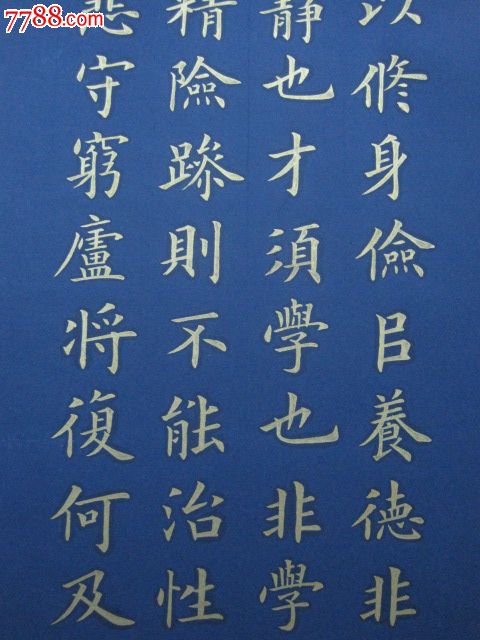 7788.com
以修身儉㠯養德非
靜也才須學也非學
精險躁則不能治性
悲守窮廬将復何及